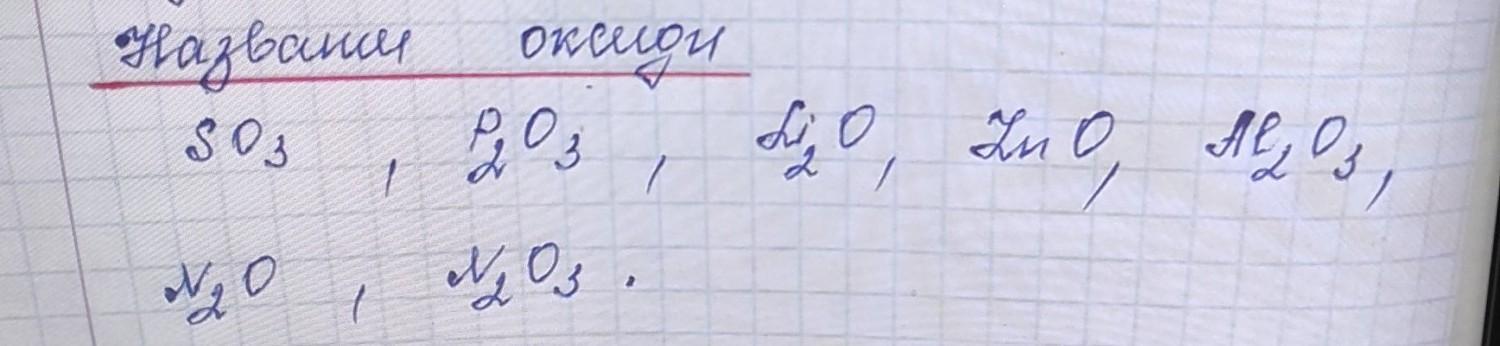 Названи оксиди
SO₃, P₂O₃, Li₂O, ZnO, Al₂O₃,
N₂O, N₂O₃.